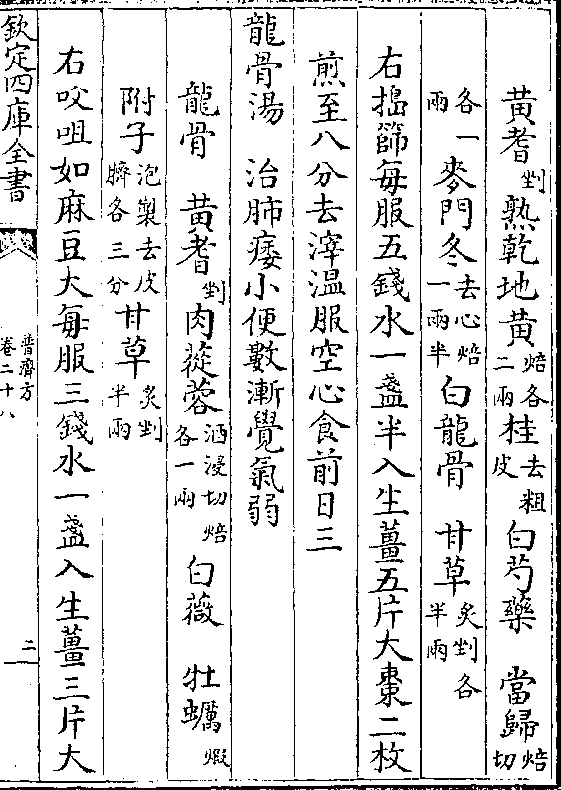 黄耆剉熟乾地黄焙各二兩桂去粗皮白芍藥　當歸切焙
各一兩麥門冬去心焙一兩半白龍骨　甘草炙剉各半兩
右搗篩每服五錢水一盞半入生薑五片大棗二枚
煎至八分去滓温服空心食前日三
龍骨湯　治肺痿小便數漸覺氣弱
龍骨　黄耆剉肉蓯蓉酒浸切焙各一兩白薇　牡蠣煅
附子炮製去皮臍各三分甘草炙剉半兩
右㕮咀如麻豆大每服三錢水一盞入生薑三片大
欽定四庫全書
普濟方
卷二十八
二